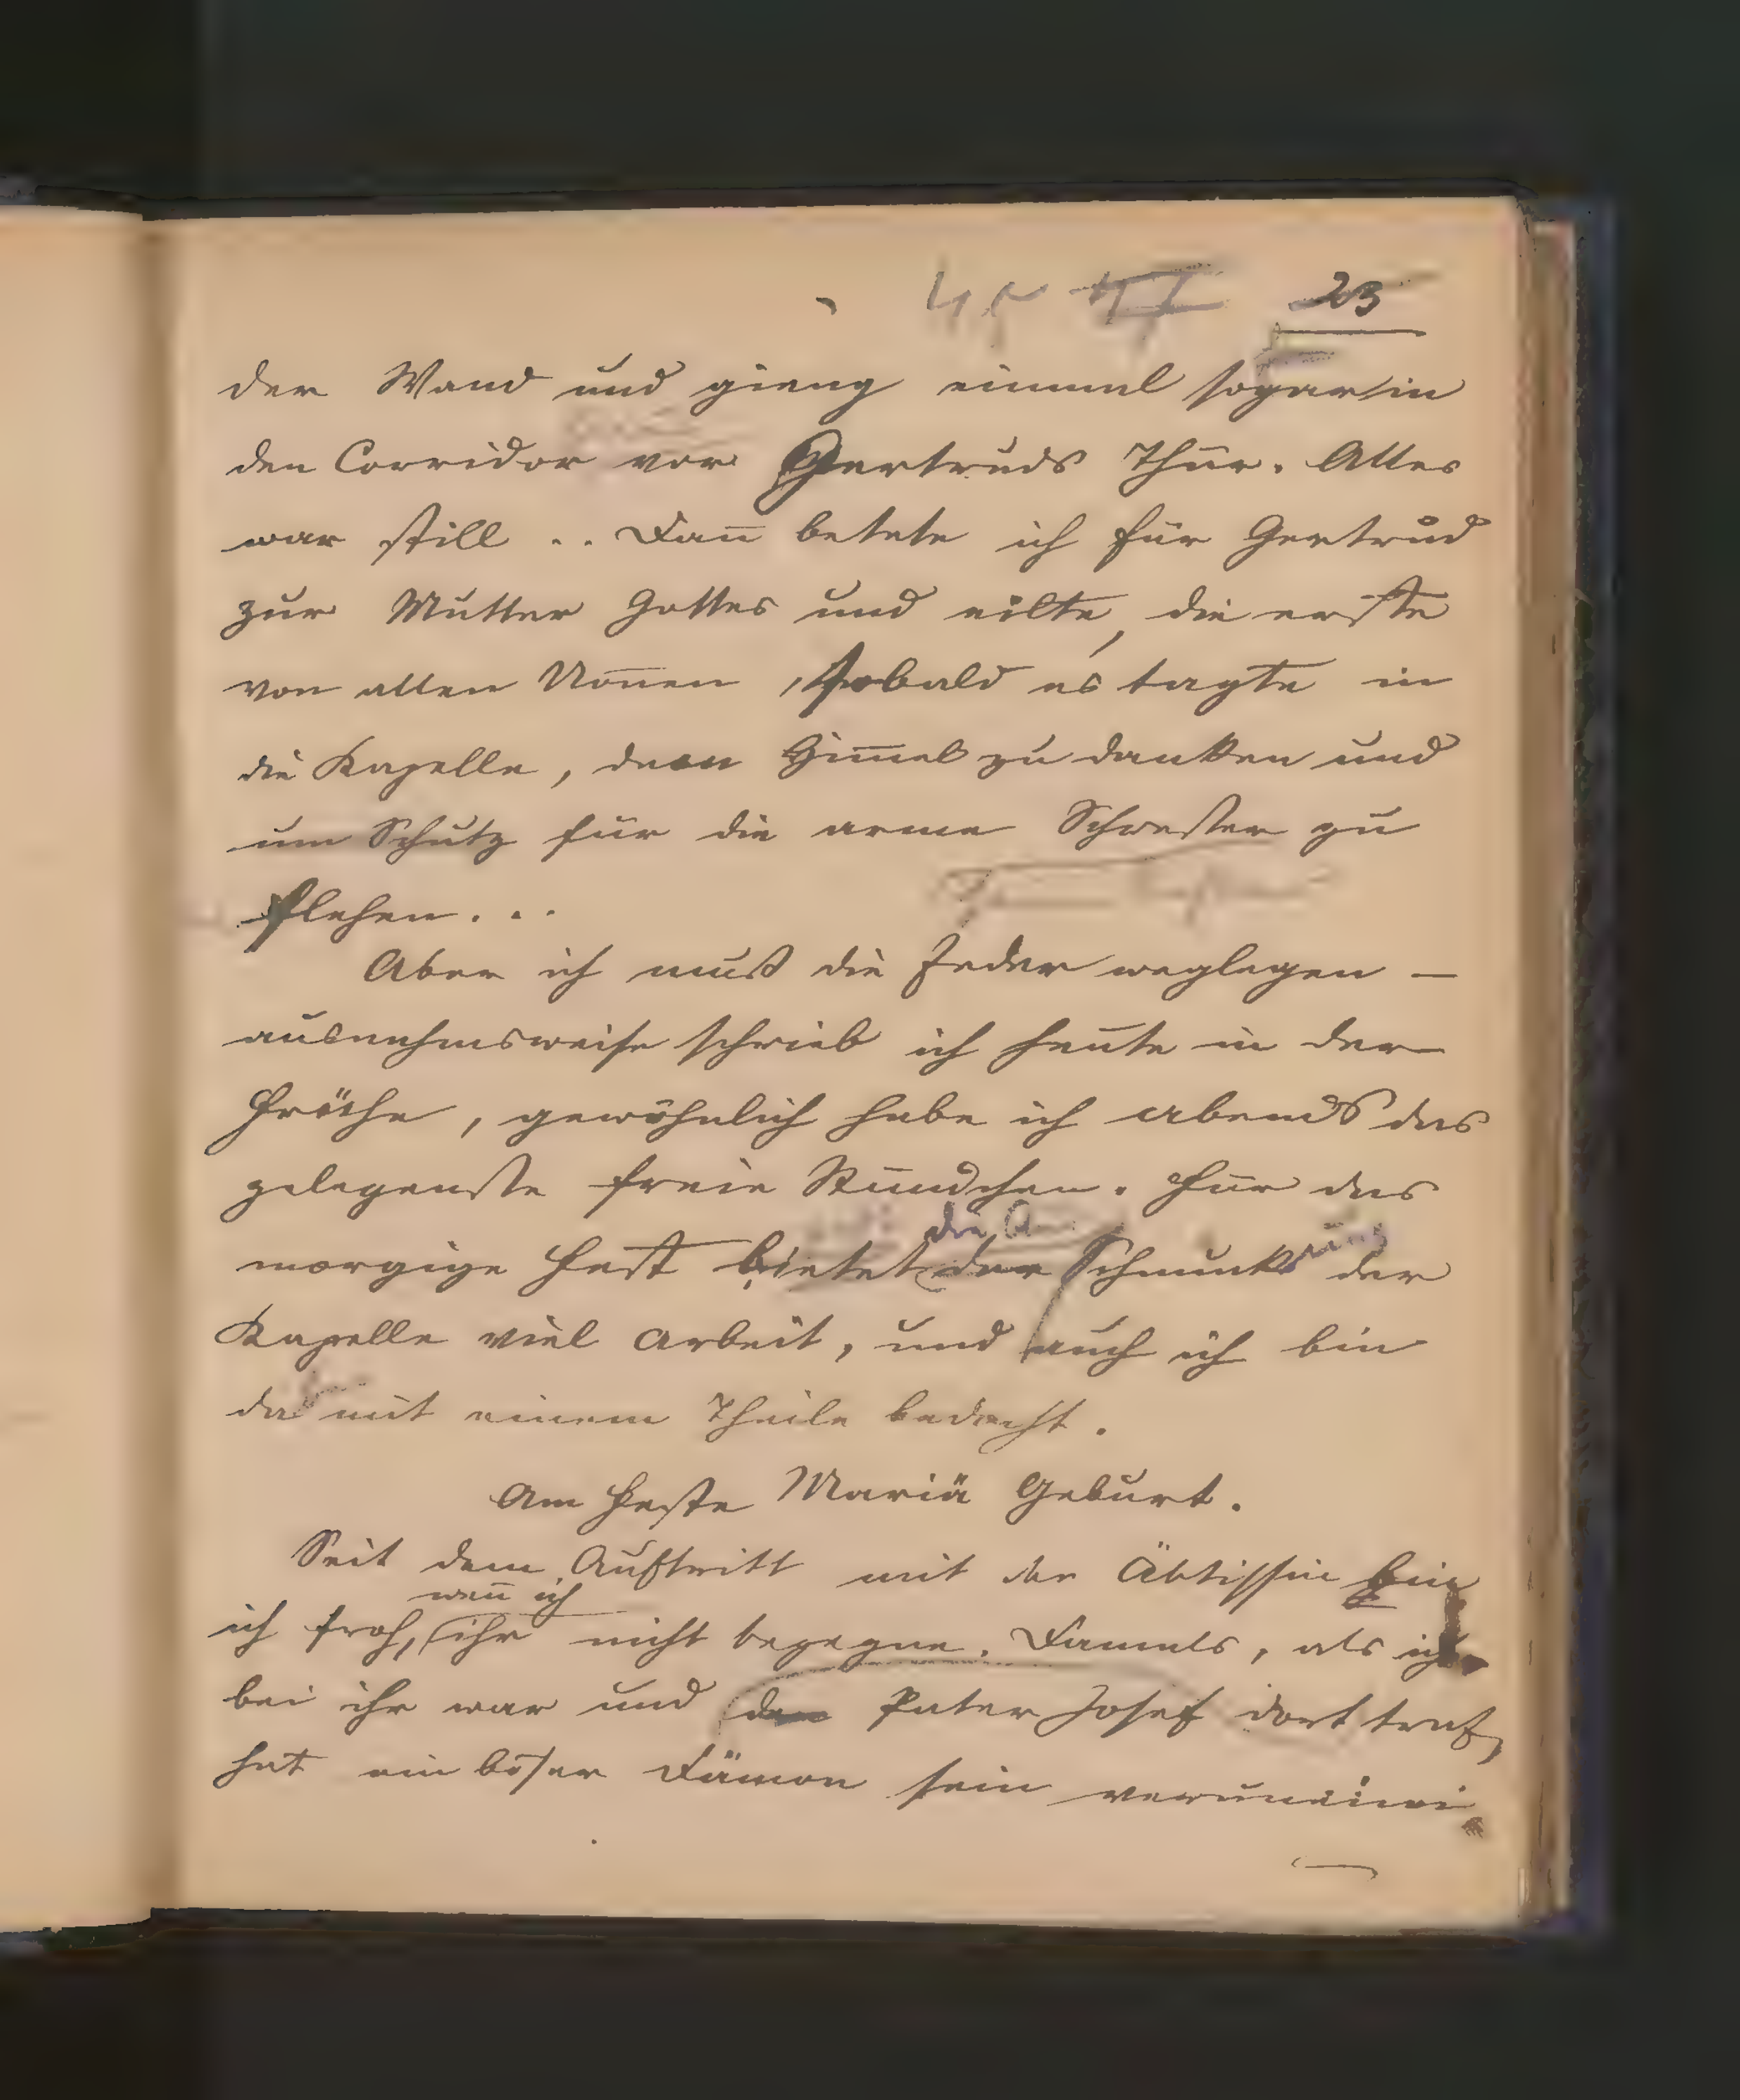 23
der Wand und gieng einmal sogar in
den Corridor vor Gertruds Thür. Alles
war still .. Dan̄ betete ich für Gertrud
zur Mutter Gottes und eilte, die erste
von allen Non̄en, sobald es tagte in
die Kapelle, dem Him̄el zu danken und
um Schutz für die arme Schwester zu
flehen...
Aber ich muß die Feder weglegen –
ausnahmsweise schrieb ich heute in der
Fröthe, gewöhnlich habe ich abends das
gelegenste freie Stündchen. Für das
die
morgige Fest bietet der Schmuck der
Kapelle viel Arbeit, und auch ich bin
da mit einem Theile bedacht.
Am Feste Mariä Geburt.
Seit dem Auftritt mit der Äbtissin bin
wen̄ ich
ich froh, ihr nicht begegne. Damals, als ich
bei ihr war und den Pater Josef dort traf,
hat ein böser Dämon sein veruneini